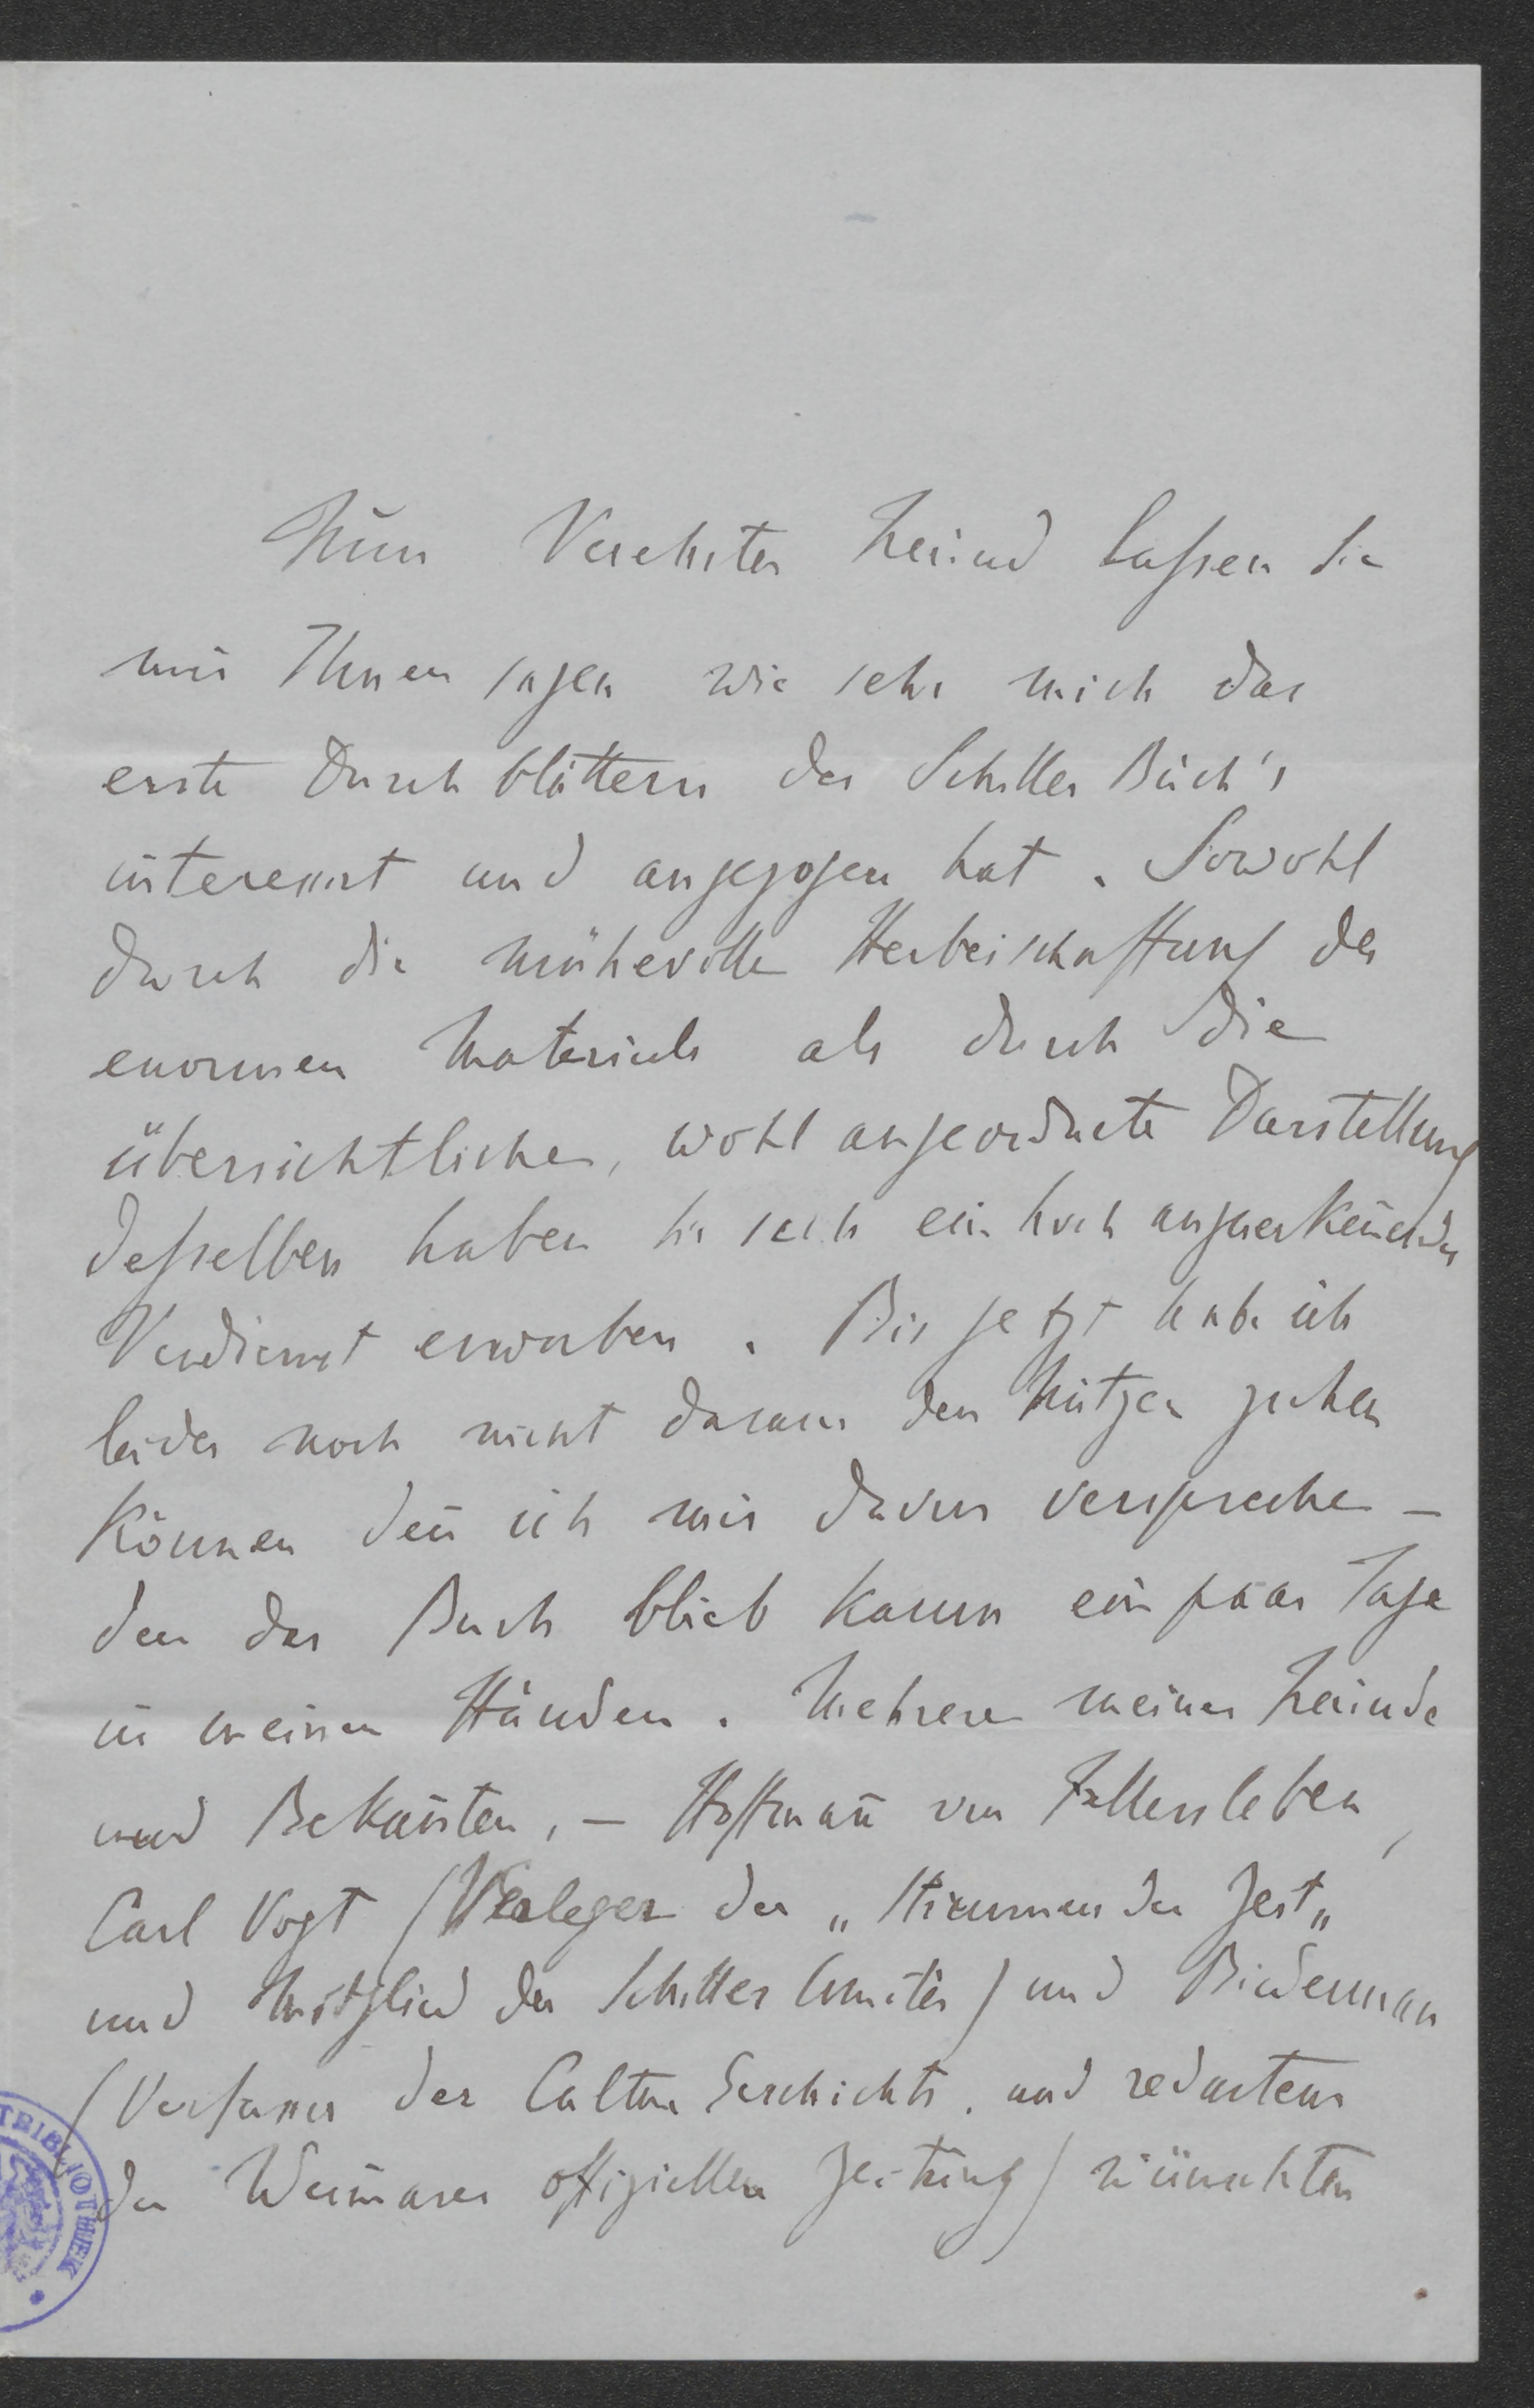 Nun Verehrter Freund lassen Sie
mir Ihnen sagen wie sehr mich das
erste Durchblättern des Schiller Buch's
interessirt und angezogen hat. Sowohl
durch die mühevolle Herbeischaffung des
enormen Materials als durch die
übersichtliche, wohl angeordnete Darstellung
desselben haben Sie sich ein hoch anzuerkenendes
Verdienst erworben. Bis jetzt habe ich
leider noch nicht daraus den Nutzen ziehen
können den ich mir davon verspreche –
den das Buch blieb kaum ein paar Tage
in meinen Händen. Mehrere meiner Freunde
und Bekañten, – Hoffmañ von Fallersleben,
Carl Vogt (Verleger der „Stimmen der Zeit„
und Mitglied des Schiller Comités) und Biederman
(Verfasser der Cultur Geschichte, und redacteur
der Weimarer offiziellen Zeitung) wünschten
TRIBLIOTHEK